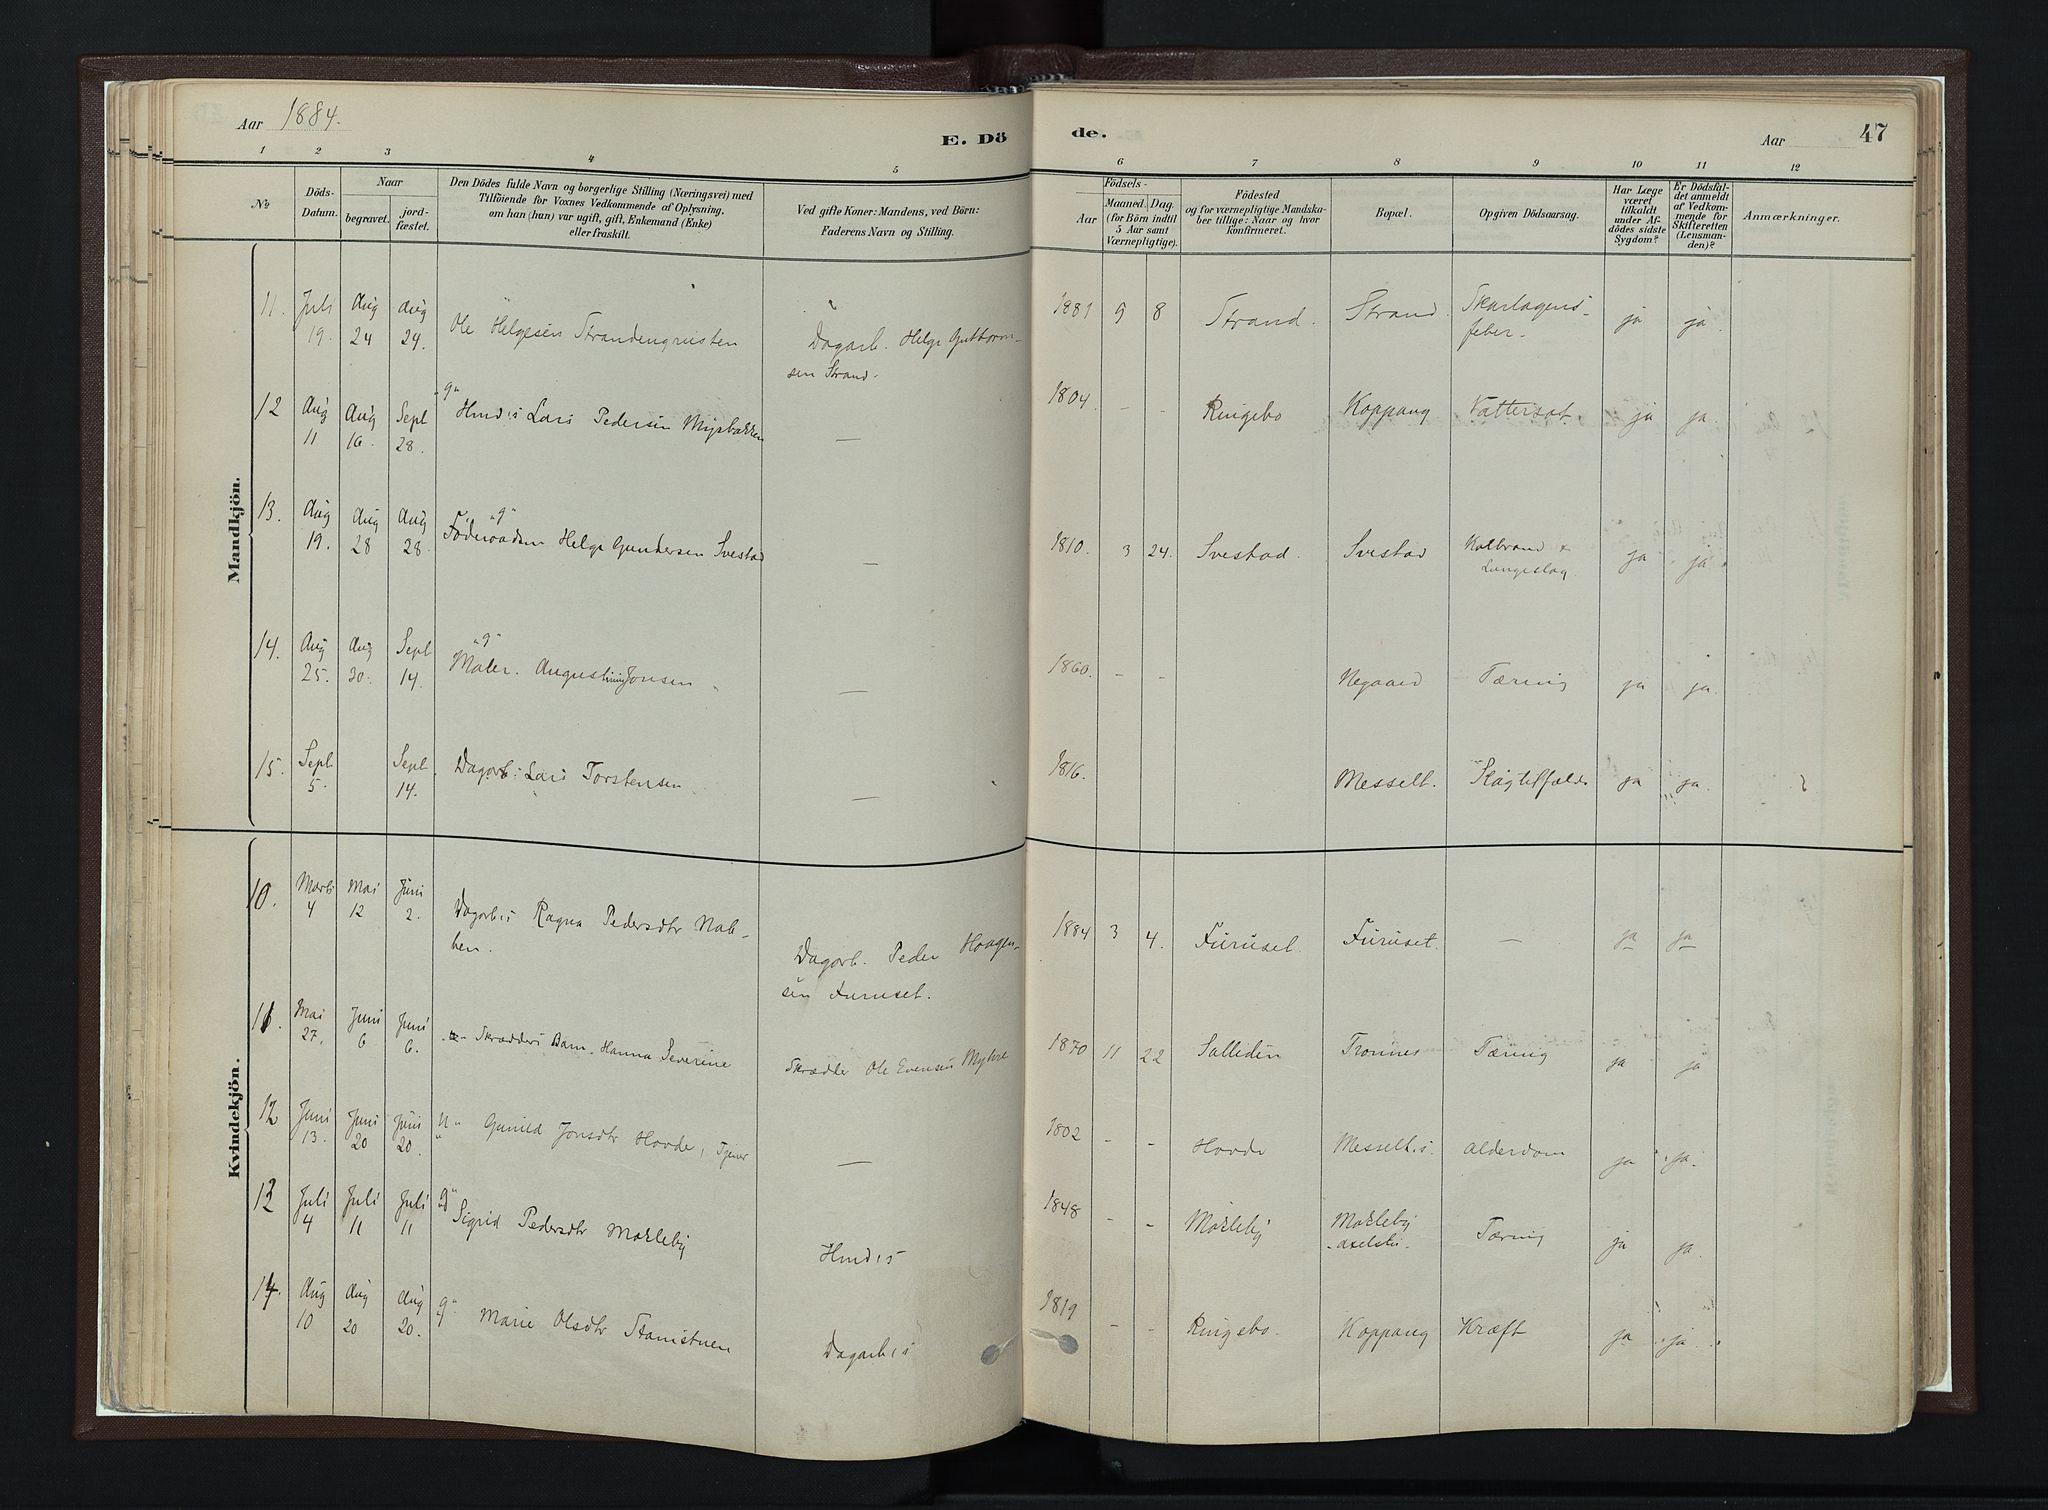 Aar 1884.
E. Dö
de.
Aar
47
1 2 3 4 5 6 7 8 9 10 11 12
№
Döds-
Datum.
Naar
begravet.
jord-
fæstet.
Den Dödes fulde Navn og borgerlige Stilling (Næringsvei) med
Tilföiende for Voxnes Vedkommende af Oplysning,
om han (hun) var ugift, gift, Enkemand (Enke)
eller fraskilt.
Ved gifte Koner: Mandens, ved Börn:
Faderens Navn og Stilling.
Födsels-
Aar
Maaned. Dag.
(for Börn indtil
5 Aar samt
Værnepligtige).
Födested
og for værnepligtige Mandska-
ber tillige: Naar og hvor
konfirmeret.
Bopæl.
Opgiven Dödsaarsag.
Har Læge
været
tilkaldt
under Af-
dödes sidste
Sygdom?
Er Dödsfal-
det anmeldt
af Vedkom-
mende for
Skifteretten
(Lensman-
den)?
Anmærkninger.
Mandkjön.
11. Juli 19. Aug 24 Aug 24. Ole Helgesen Strandenqvisten
Dagarb. Helge Guttorm-
sen Strand.
1881 9 8 Strand. Strand. Skarlagens-
feber. ja ja.
12 Aug 11 Aug 16. Sept 28. "g" Hmds Lars Pedersen Myrbakken —
1804. - - Ringebo Koppang Vattersot. ja ja.
13. Aug 19. Aug 28 Aug 28. "g" Föderaadsm Helge Gundersen Svestad —
1810. 3 24. Svestad. Svestad Kolbrand &
ja ja.
14. Aug 25. Aug 30. Sept 14. "g" Maler. Augustinus Jonsen —
1860. - - Negaard Tæring ja ja.
15. Sept 5. Sept 14. Dagarb: Lars Torstensen —
1816. Messelt. ja ja.
Kvindekjön.
10. Marts 4 Mai 12 Juni 2. Dagarbs Ragna Pedersdtr Nab-
ben.
Dagarb. Peder Haagen-
sen Furuset.
1884 3 4. Furuset. Furuset. — ja ja
11. Mai 27. Juni 6 Juni 6. Skrædders Barn. Hanna Severine
Skrædder Ole Evensen
1870 11 22 Sollidén Trønnes Tæring ja ja
12 Juni 13. Juni 20 Juni 20. "u" Gunild Jonsdtr Hovde, Tjener —
1802 - - Hovde Messeltes. Alderdom ja ja.
13 Juli 4 Juli 11 Juli 11 "g" Sigrid Pedersdtr Morkeby
Hmds
1848 - - Morkeby Morkeby
Tæring ja ja.
14. Aug 10 Aug 20 Aug 20. "g" Marie Olsdtr Stamstuen
Dagarbs
1819 - - Ringebo. Koppang Kræft ja ja.